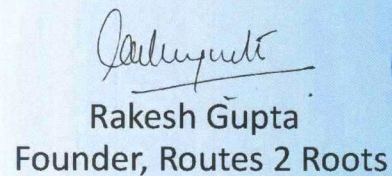 Rakesh Gupta
Founder, Routes 2 Roots